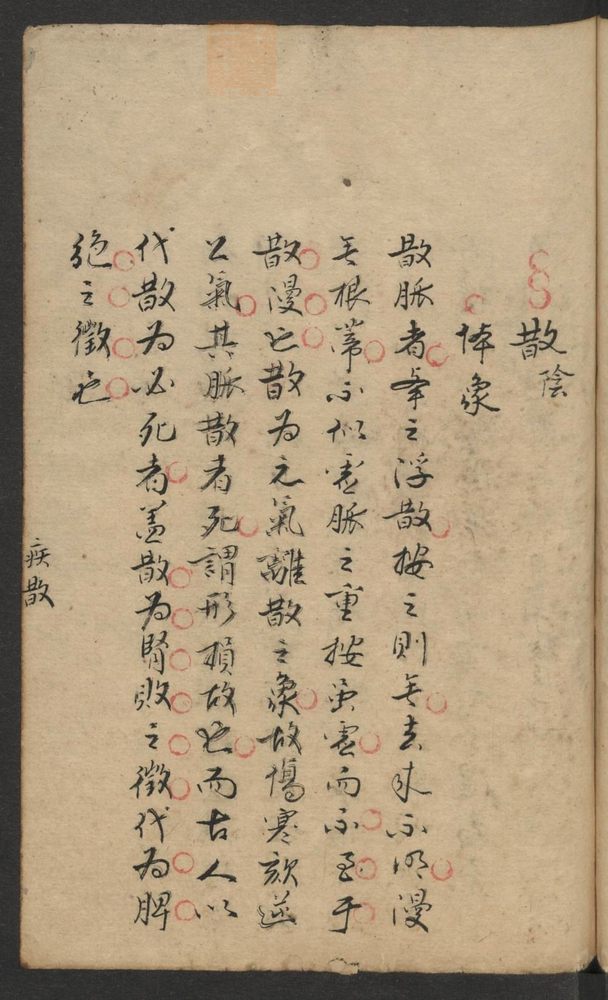 散陰
体象
散脈者舉之浮散按之則無去来不明漫
無根蒂不似虚脈之重按虽虚而不至于
散漫也散为元氣離散之象故傷寒欬逆
上氣其脈散者死謂形損故也而古人以
代散为必死者盖散为腎敗之徵代为脾
绝之徵也
疾散